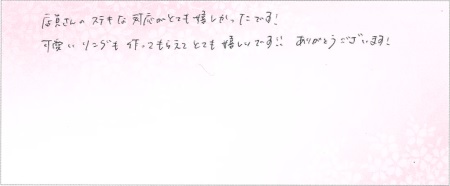 店員さんのステキな対応がとても嬉しかったです!
可愛いリングも作ってもらえてとても嬉しいです!! ありがとうございます!